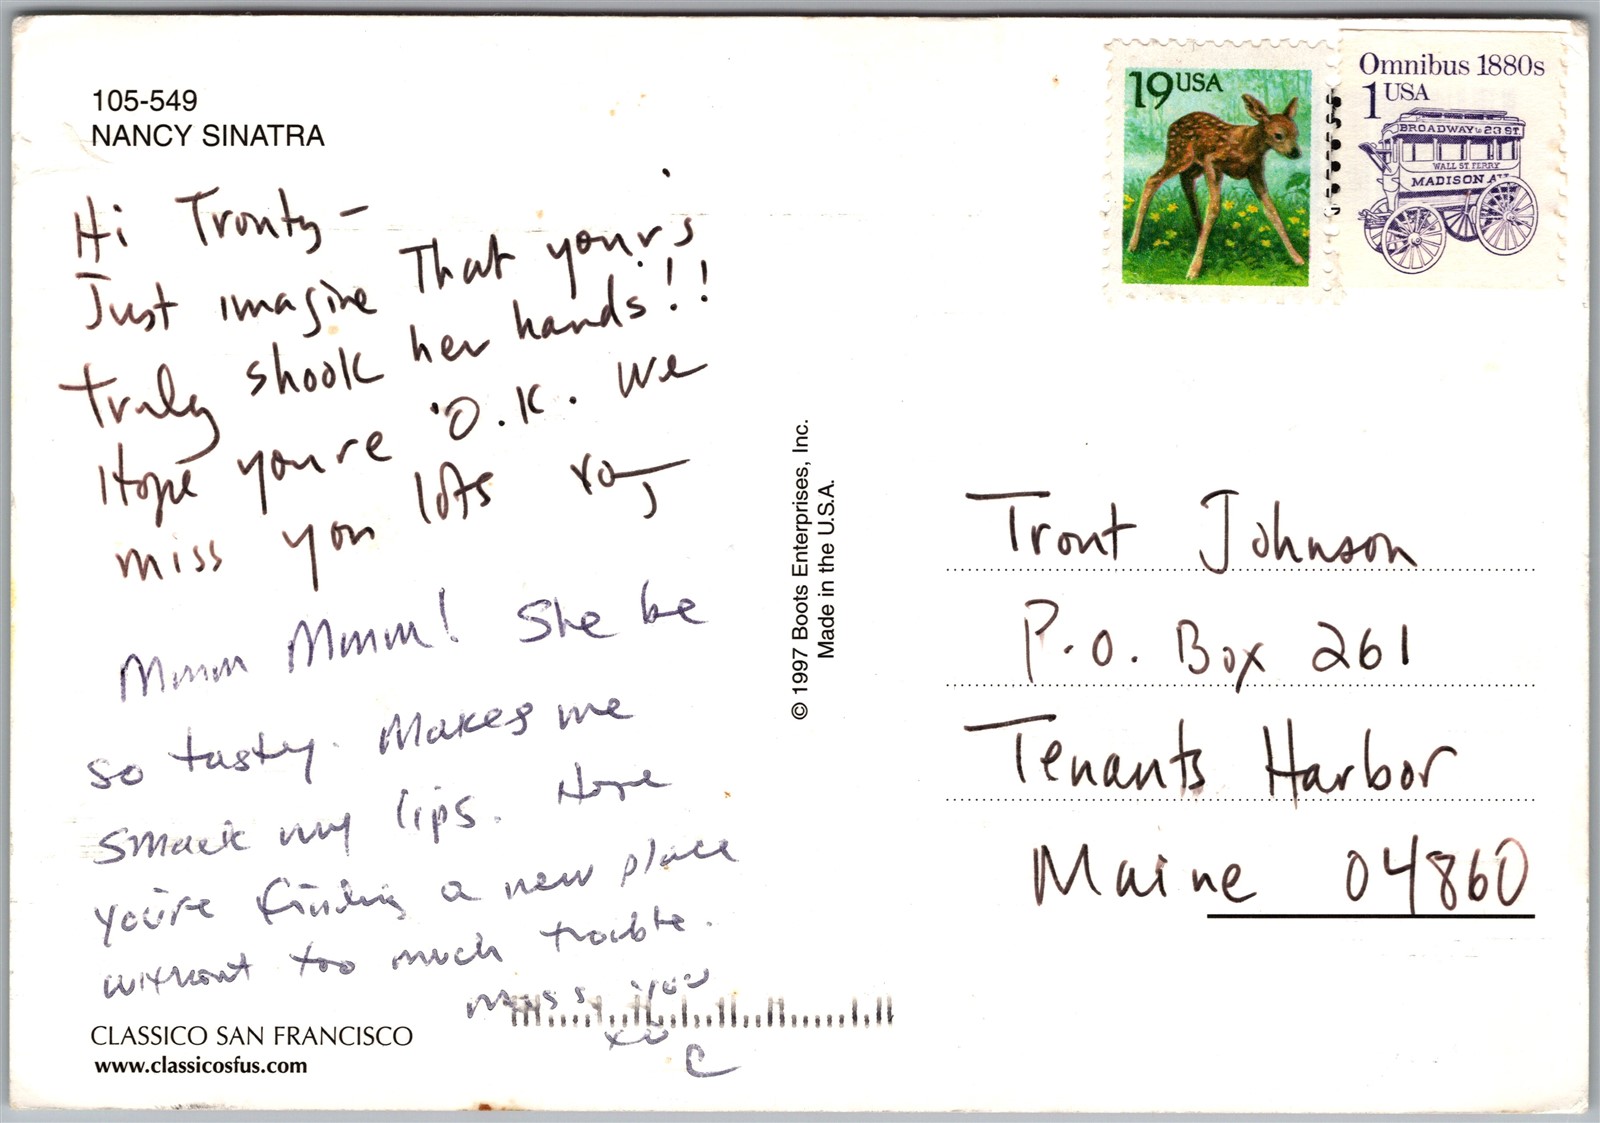 105-549
NANCY SINATRA
Hi Trouty-
Just imagine That your's
truly shook her hands!!
Hope you're O.K. We
miss you lots xo
Mmm Mmmm! She be
so tasty. Makes me
smack my lips. Hope
you're finding a new place
without too much trouble.
Miss you
xo
C
CLASSICO SAN FRANCISCO
www.classicosfus.com
© 1997 Boots Enterprises, Inc.
Made in the U.S.A.
19 USA
Omnibus 1880s
1 USA
BROADWAY to 23 ST.
WALL ST FERRY
MADISON AV
Trout Johnson
P.O. Box 261
Tenants Harbor
Maine 04860